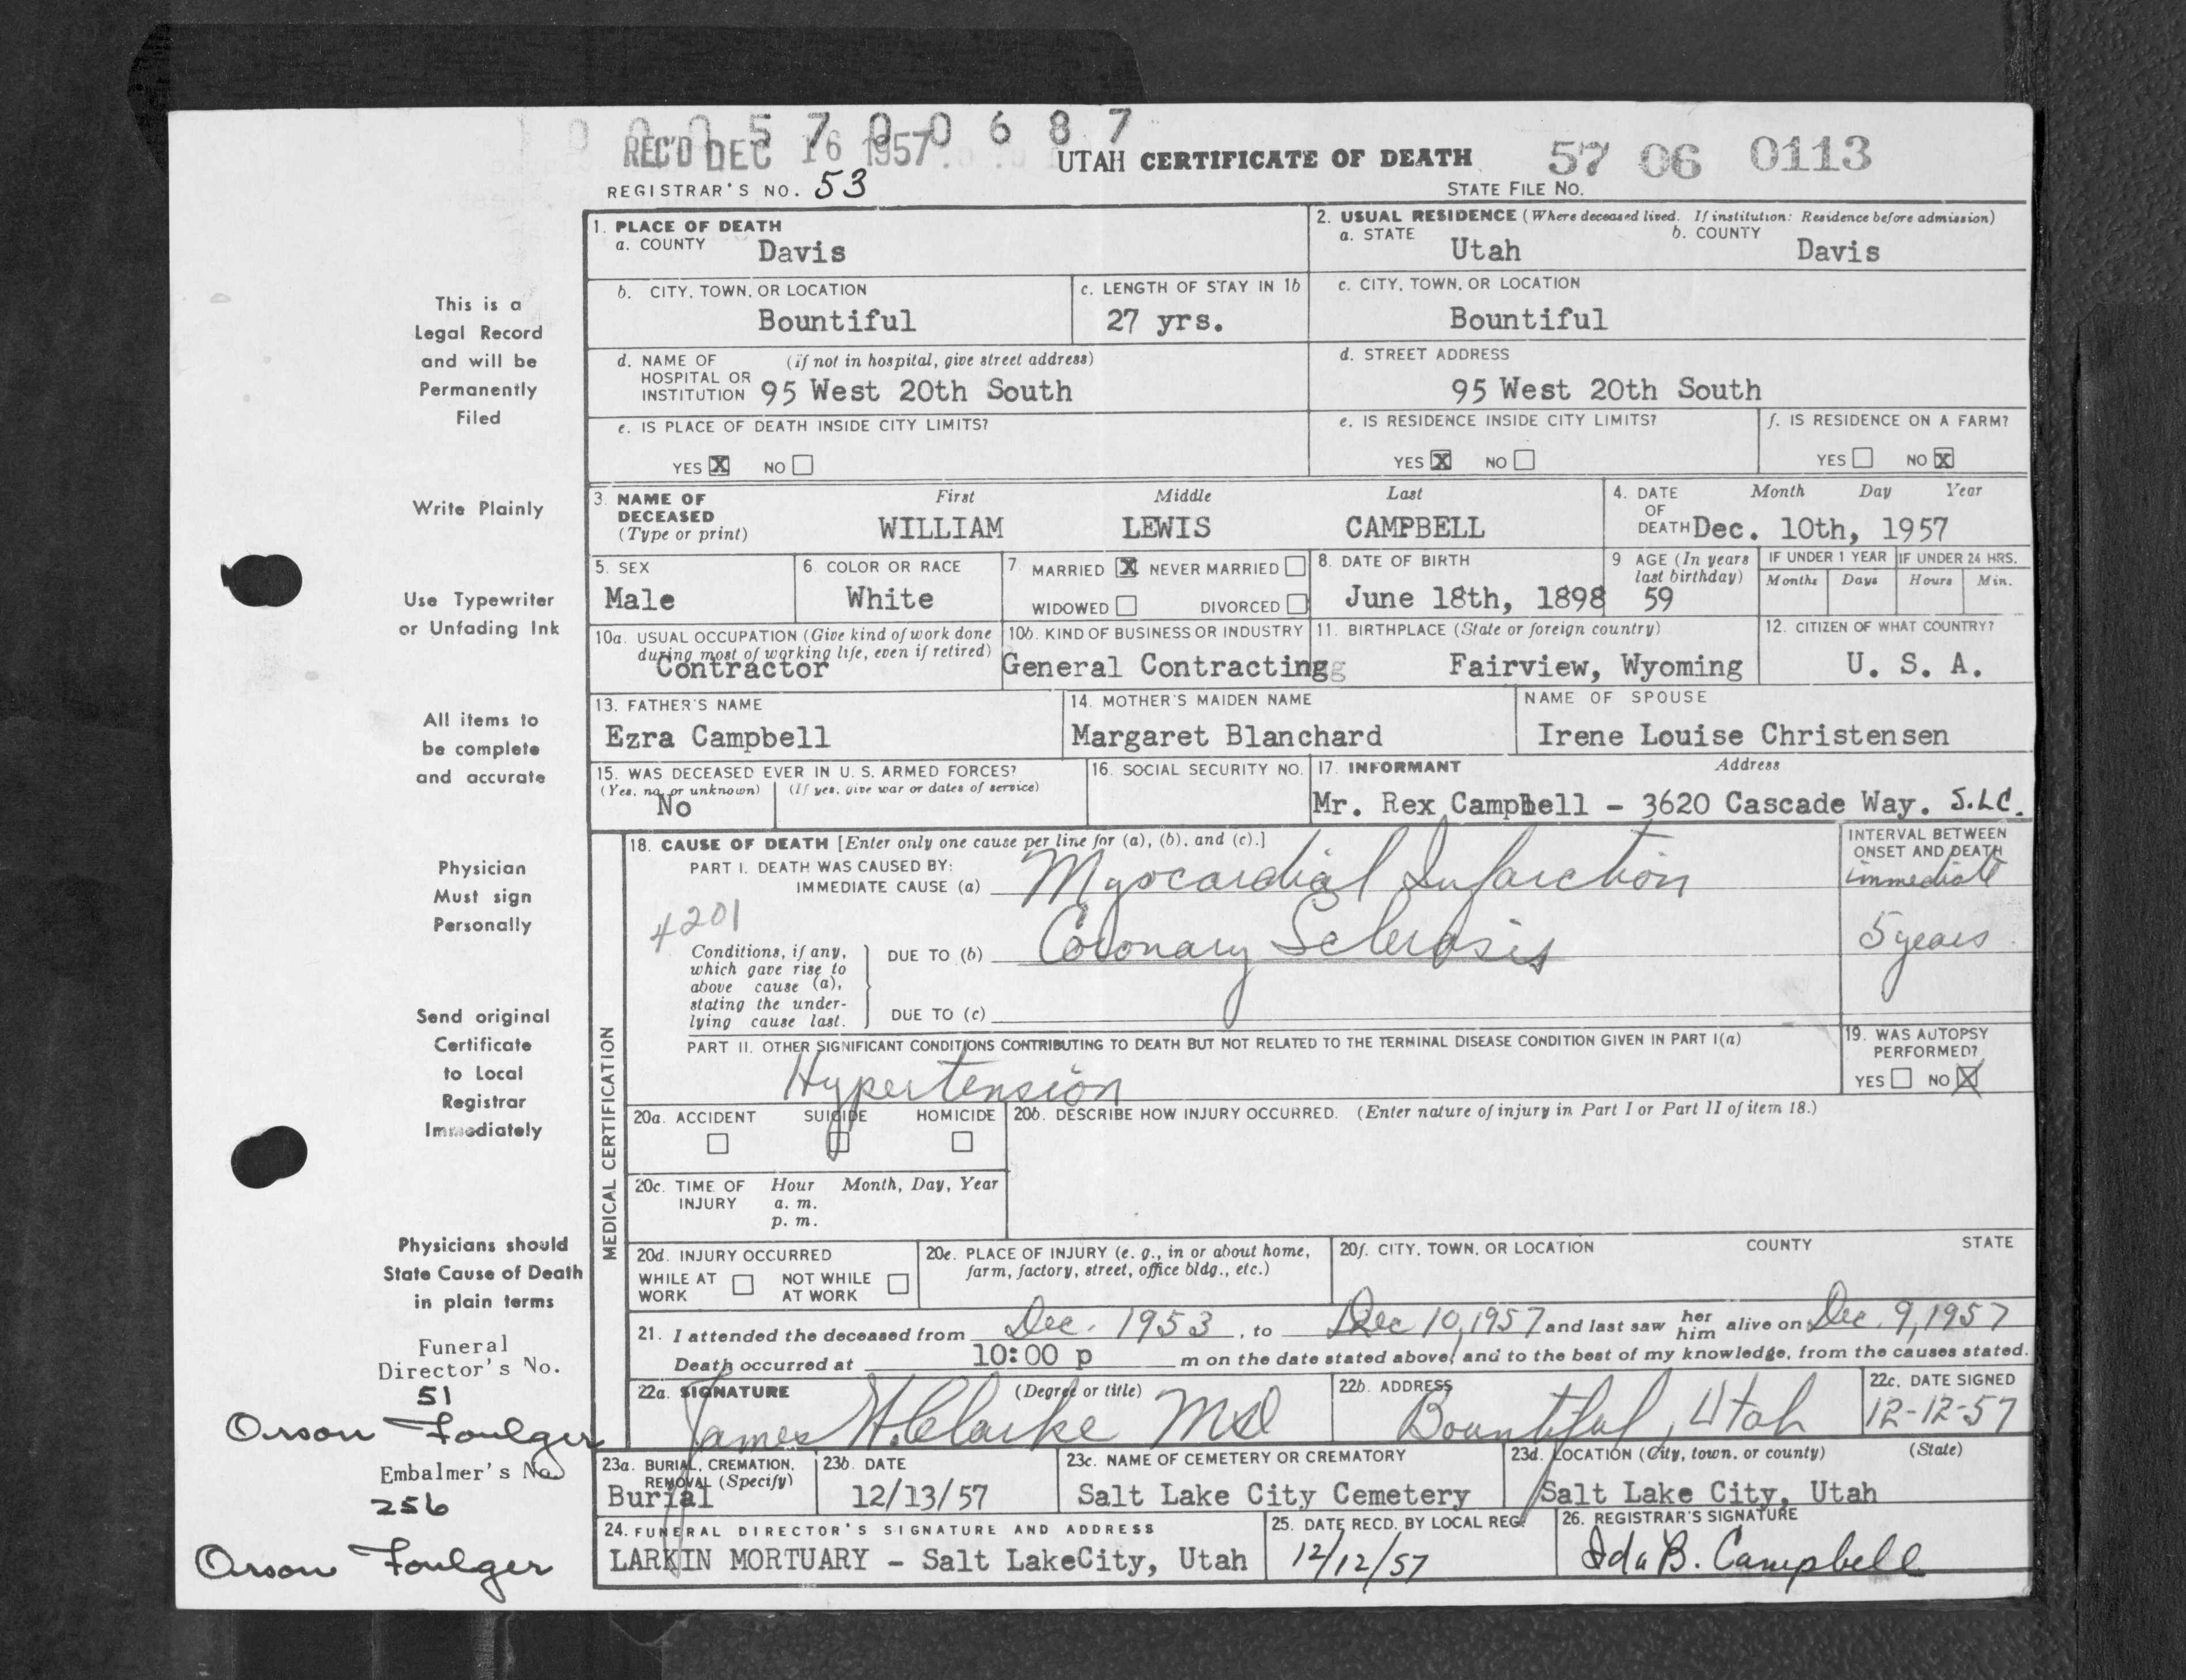 0 0 0 5 7 0 0 6 8 7
REC'D DEC 16 1957
UTAH CERTIFICATE OF DEATH
57 06 0113
REGISTRAR'S NO. 53
STATE FILE NO.
1. PLACE OF DEATH
a. COUNTY Davis
2. USUAL RESIDENCE (Where deceased lived. If institution: Residence before admission)
a. STATE Utah b. COUNTY Davis
b. CITY, TOWN, OR LOCATION
Bountiful
c. LENGTH OF STAY IN 1b
27 yrs.
c. CITY, TOWN, OR LOCATION
Bountiful
d. NAME OF HOSPITAL OR INSTITUTION (if not in hospital, give street address)
95 West 20th South
d. STREET ADDRESS
95 West 20th South
e. IS PLACE OF DEATH INSIDE CITY LIMITS?
YES X NO
e. IS RESIDENCE INSIDE CITY LIMITS?
YES X NO
f. IS RESIDENCE ON A FARM?
YES NO X
3. NAME OF DECEASED (Type or print)
First Middle Last
WILLIAM LEWIS CAMPBELL
4. DATE OF DEATH Month Day Year
Dec. 10th, 1957
5. SEX
Male
6. COLOR OR RACE
White
7. MARRIED X NEVER MARRIED
WIDOWED DIVORCED
8. DATE OF BIRTH
June 18th, 1898
9 AGE (In years last birthday)
59
IF UNDER 1 YEAR
Months Days
IF UNDER 24 HRS.
Hours Min.
10a. USUAL OCCUPATION (Give kind of work done during most of working life, even if retired)
Contractor
10b. KIND OF BUSINESS OR INDUSTRY
General Contracting
11. BIRTHPLACE (State or foreign country)
Fairview, Wyoming
12. CITIZEN OF WHAT COUNTRY?
U. S. A.
13. FATHER'S NAME
Ezra Campbell
14. MOTHER'S MAIDEN NAME
Margaret Blanchard
NAME OF SPOUSE
Irene Louise Christensen
15. WAS DECEASED EVER IN U. S. ARMED FORCES?
(Yes, no, or unknown) (If yes, give war or dates of service)
No
16. SOCIAL SECURITY NO.
17. INFORMANT Address
Mr. Rex Campbell - 3620 Cascade Way. S.L.C.
MEDICAL CERTIFICATION
18. CAUSE OF DEATH [Enter only one cause per line for (a), (b), and (c).]
PART I. DEATH WAS CAUSED BY:
IMMEDIATE CAUSE (a) Myocardial Infarction
INTERVAL BETWEEN ONSET AND DEATH
immediate
4201
Conditions, if any, which gave rise to above cause (a), stating the underlying cause last.
DUE TO (b) Coronary Sclerosis
5 years
DUE TO (c)
PART II. OTHER SIGNIFICANT CONDITIONS CONTRIBUTING TO DEATH BUT NOT RELATED TO THE TERMINAL DISEASE CONDITION GIVEN IN PART I(a)
Hypertension
19. WAS AUTOPSY PERFORMED?
YES NO X
20a. ACCIDENT SUICIDE HOMICIDE
20b. DESCRIBE HOW INJURY OCCURRED. (Enter nature of injury in Part I or Part II of item 18.)
20c. TIME OF INJURY Hour Month, Day, Year
a. m.
p. m.
20d. INJURY OCCURRED
WHILE AT WORK NOT WHILE AT WORK
20e. PLACE OF INJURY (e. g., in or about home, farm, factory, street, office bldg., etc.)
20f. CITY, TOWN, OR LOCATION COUNTY STATE
21. I attended the deceased from Dec. 1953, to Dec 10, 1957 and last saw her him alive on Dec. 9, 1957
Death occurred at 10:00 p m on the date stated above, and to the best of my knowledge, from the causes stated.
22a. SIGNATURE (Degree or title)
James H. Clarke MD
22b. ADDRESS
Bountiful, Utah
22c. DATE SIGNED
12-12-57
23a. BURIAL, CREMATION, REMOVAL (Specify)
Burial
23b. DATE
12/13/57
23c. NAME OF CEMETERY OR CREMATORY
Salt Lake City Cemetery
23d. LOCATION (City, town, or county) (State)
Salt Lake City, Utah
24. FUNERAL DIRECTOR'S SIGNATURE AND ADDRESS
LARKIN MORTUARY - Salt LakeCity, Utah
25. DATE RECD. BY LOCAL REG.
12/12/57
26. REGISTRAR'S SIGNATURE
Ida B. Campbell
This is a
Legal Record
and will be
Permanently
Filed
Write Plainly
Use Typewriter
or Unfading Ink
All items to
be complete
and accurate
Physician
Must sign
Personally
Send original
Certificate
to Local
Registrar
Immediately
Physicians should
State Cause of Death
in plain terms
Funeral
Director's No.
51
Orson Foulger
Embalmer's No.
256
Orson Foulger